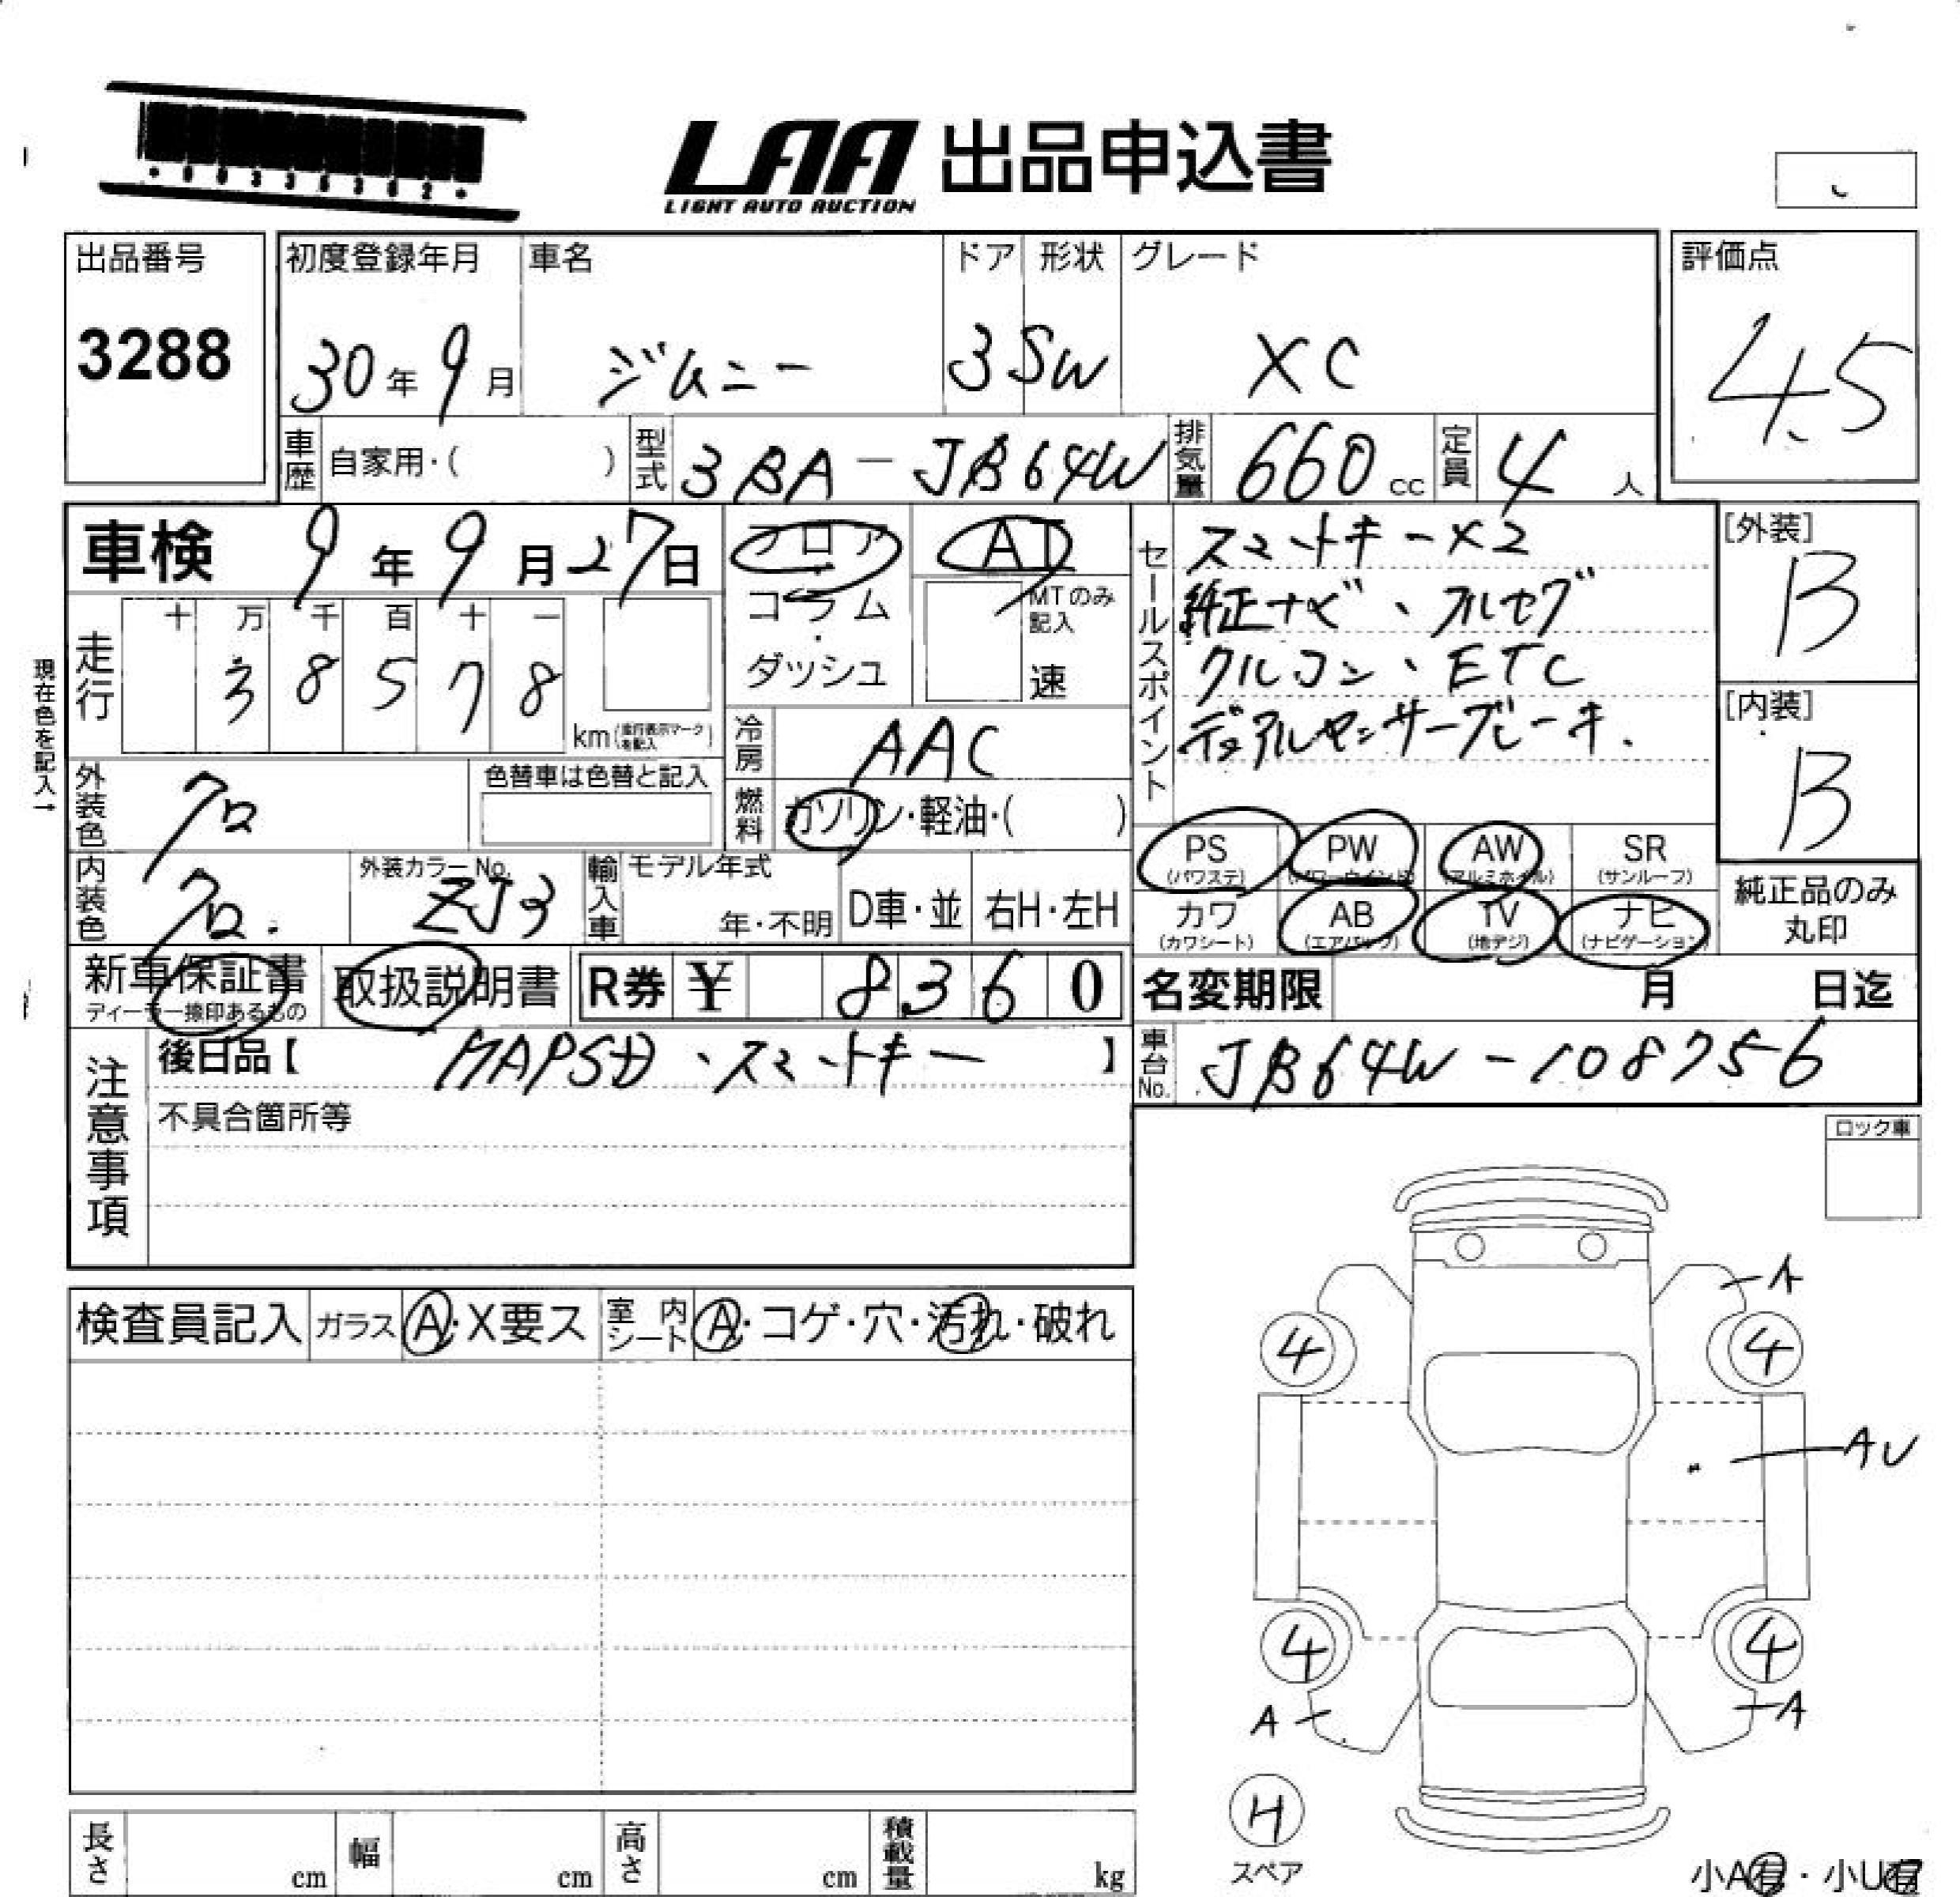 LAA 出品申込書
LIGHT AUTO AUCTION
出品番号
3288
初度登録年月
30年9月
車名
ジムニー
ドア
3
形状
SW
グレード
XC
評価点
4.5
車歴
自家用・( )
型式
3BA-JB64W
排気量
660cc
定員
4人
車検 9年9月27日
フロア
コラム
・
ダッシュ
AT
MTのみ
記入
速
セールスポイント
スマートキー×2
純正ナビ、フルセグ
クルコン、ETC
デュアルセンサーブレーキ.
[外装]
B
[内装]
B
現在色を記入→
走行
十 万 千 百 十 一
3 8 5 7 8
km(走行表示マークを記入)
冷房
AAC
外装色
クロ
色替車は色替と記入
燃料
ガソリン・軽油・( )
内装色
クロ.
外装カラーNo.
ZJ3
輸入車
モデル年式
年・不明
D車・並
右H・左H
PS (パワステ)
PW (パワーウインド)
AW (アルミホイル)
SR (サンルーフ)
カワ (カワシート)
AB (エアバッグ)
TV (地デジ)
ナビ (ナビゲーション)
純正品のみ
丸印
新車保証書
ディーラー捺印あるもの
取扱説明書
R券 ¥ 8360
名変期限 月 日迄
注意事項
後日品【 MAPSD、スマートキー 】
不具合箇所等
車台No.
JB64W-108756
ロック車
検査員記入
ガラス A・X要ス
室内シート A・コゲ・穴・汚れ・破れ
A
4 4
AU
4 4
A A
H
スペア
小A有・小U有
長さ cm
幅 cm
高さ cm
積載量 kg